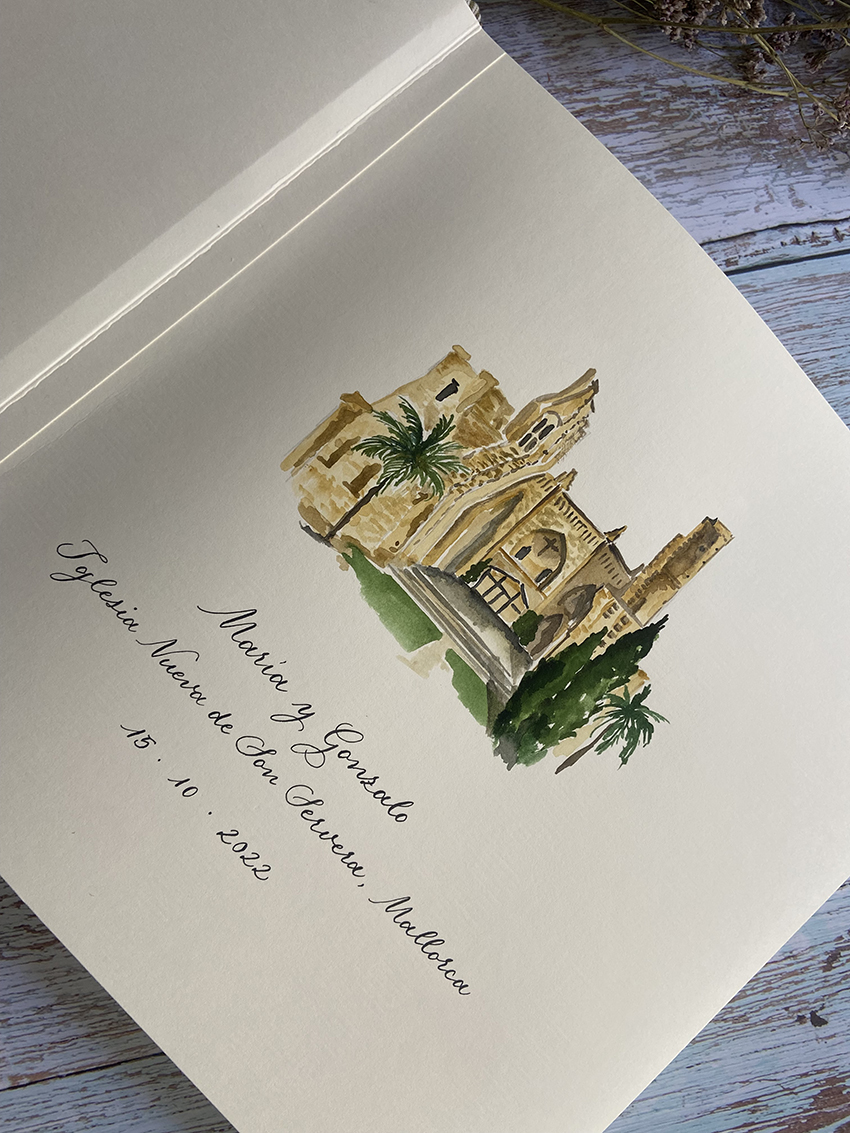 María y Gonzalo
Iglesia Nueva de Son Servera, Mallorca
15 · 10 · 2022